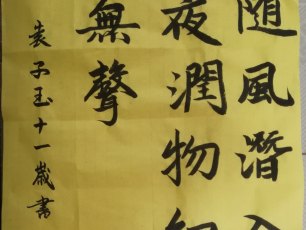 随風潛入
夜潤物細
無聲
袁子玉十一歲書